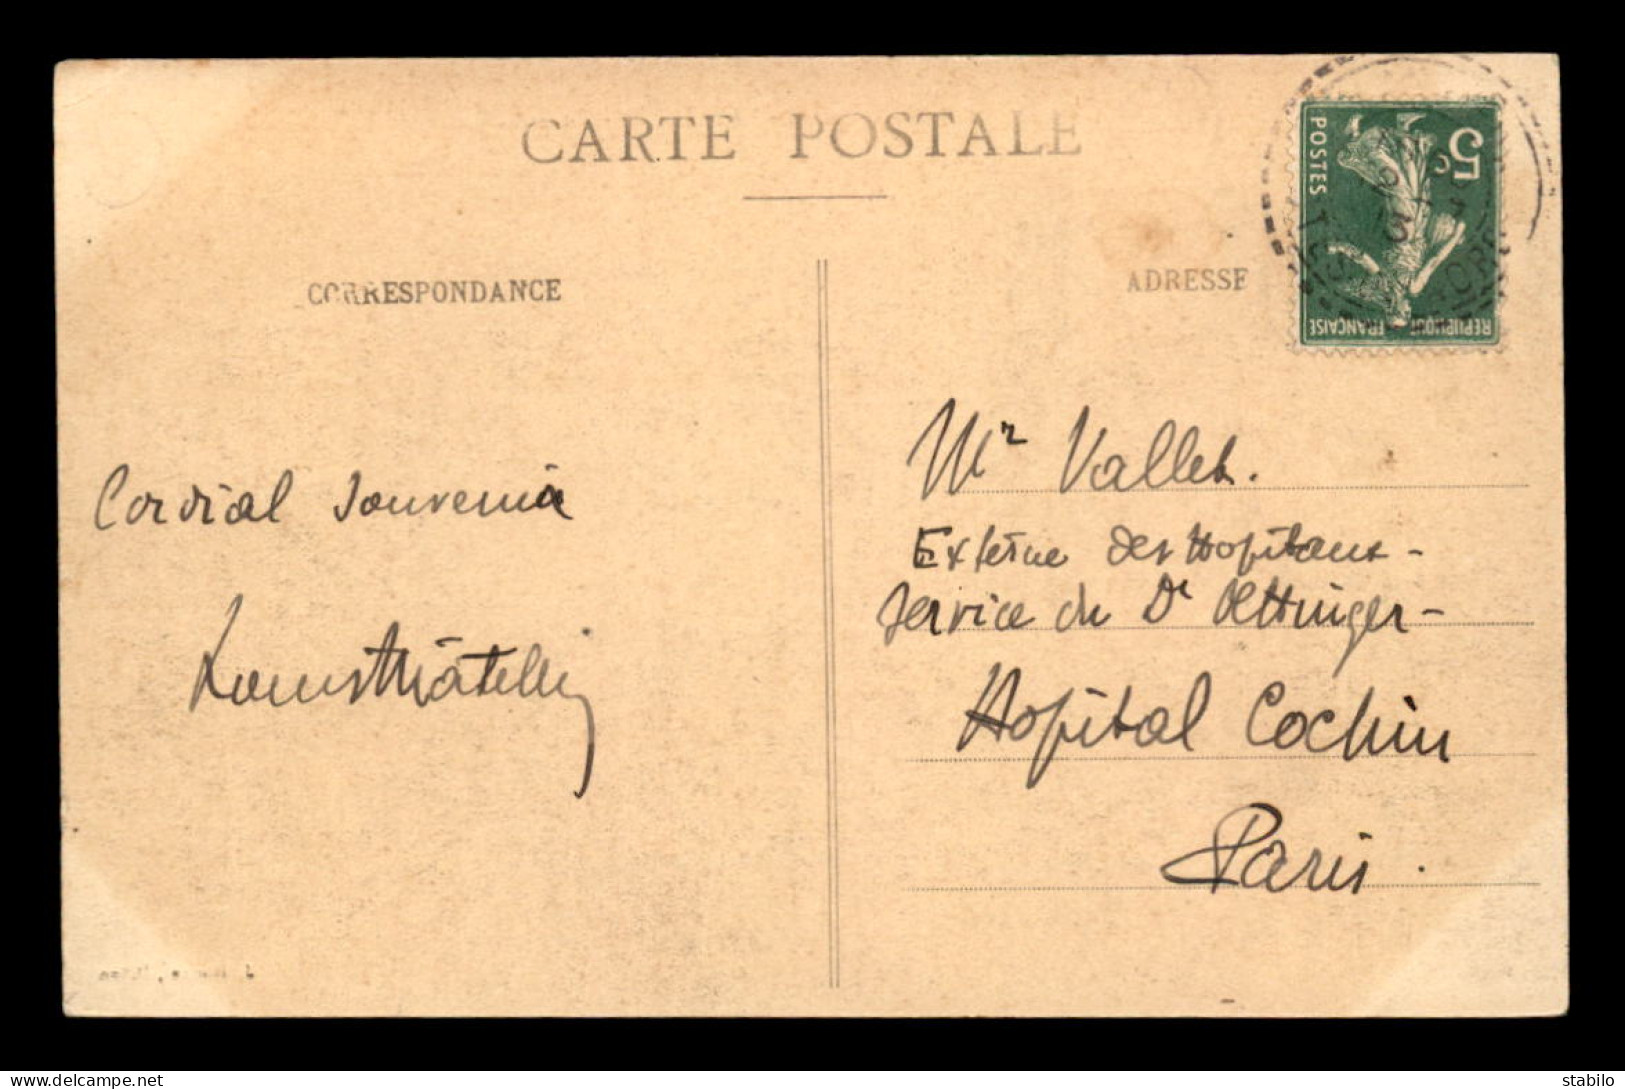 CARTE POSTALE
CORRESPONDANCE
ADRESSE
5c
POSTES
REPUBLIQUE FRANÇAISE
Cordial souvenir
Mr Vallet.
Externe des Hopitaux -
Service du Dr Oettinger -
Hopital Cochin
Paris.
stabilo